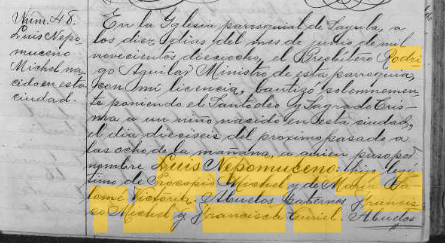 Núm. 48.
Luis Nepo
muceno
Michel na
cido en esta
ciudad.
En la Yglesia parroquial de Sayula, a
los diez días del mes de Junio de mil
novecientos dieciocho, el Presbítero Rodri
go Aguilar Ministro de esta parroquia,
con mi licencia, bautizó solemnemen
te poniendo el Santo Oleo y Sagrado Cris
ma a un niño nacido en esta ciudad,
el día dieciseis del proximo pasado a
las ocho de la mañana, a quien puso por
nombre Luis Nepomuceno: hijo legí
timo de Procopio Michel y de María
Victoria. Abuelos paternos Francis
co Michel y Francisca Curiel. Abuelos